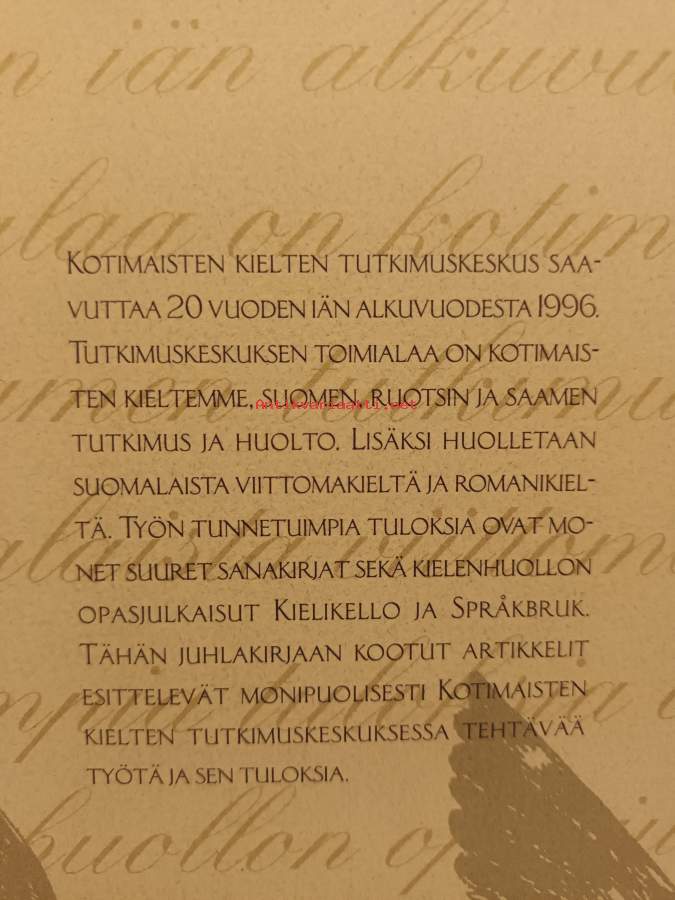 n iän alkuvuo
alaa on kotim
KOTIMAISTEN KIELTEN TUTKIMUSKESKUS SAA-
VUTTAA 20 VUODEN IÄN ALKUVUODESTA 1996.
TUTKIMUSKESKUKSEN TOIMIALAA ON KOTIMAIS-
TEN KIELTEMME, SUOMEN, RUOTSIN JA SAAMEN
Antikvariaatti.net
TUTKIMUS JA HUOLTO. LISÄKSI HUOLLETAAN
SUOMALAISTA VIITTOMAKIELTÄ JA ROMANIKIEL-
TÄ. TYÖN TUNNETUIMPIA TULOKSIA OVAT MO-
NET SUURET SANAKIRJAT SEKÄ KIELENHUOLLON
OPASJULKAISUT KIELIKELLO JA SPRÅKBRUK.
TÄHÄN JUHLAKIRJAAN KOOTUT ARTIKKELIT
ESITTELEVÄT MONIPUOLISESTI KOTIMAISTEN
KIELTEN TUTKIMUSKESKUKSESSA TEHTÄVÄÄ
TYÖTÄ JA SEN TULOKSIA.
huollon op